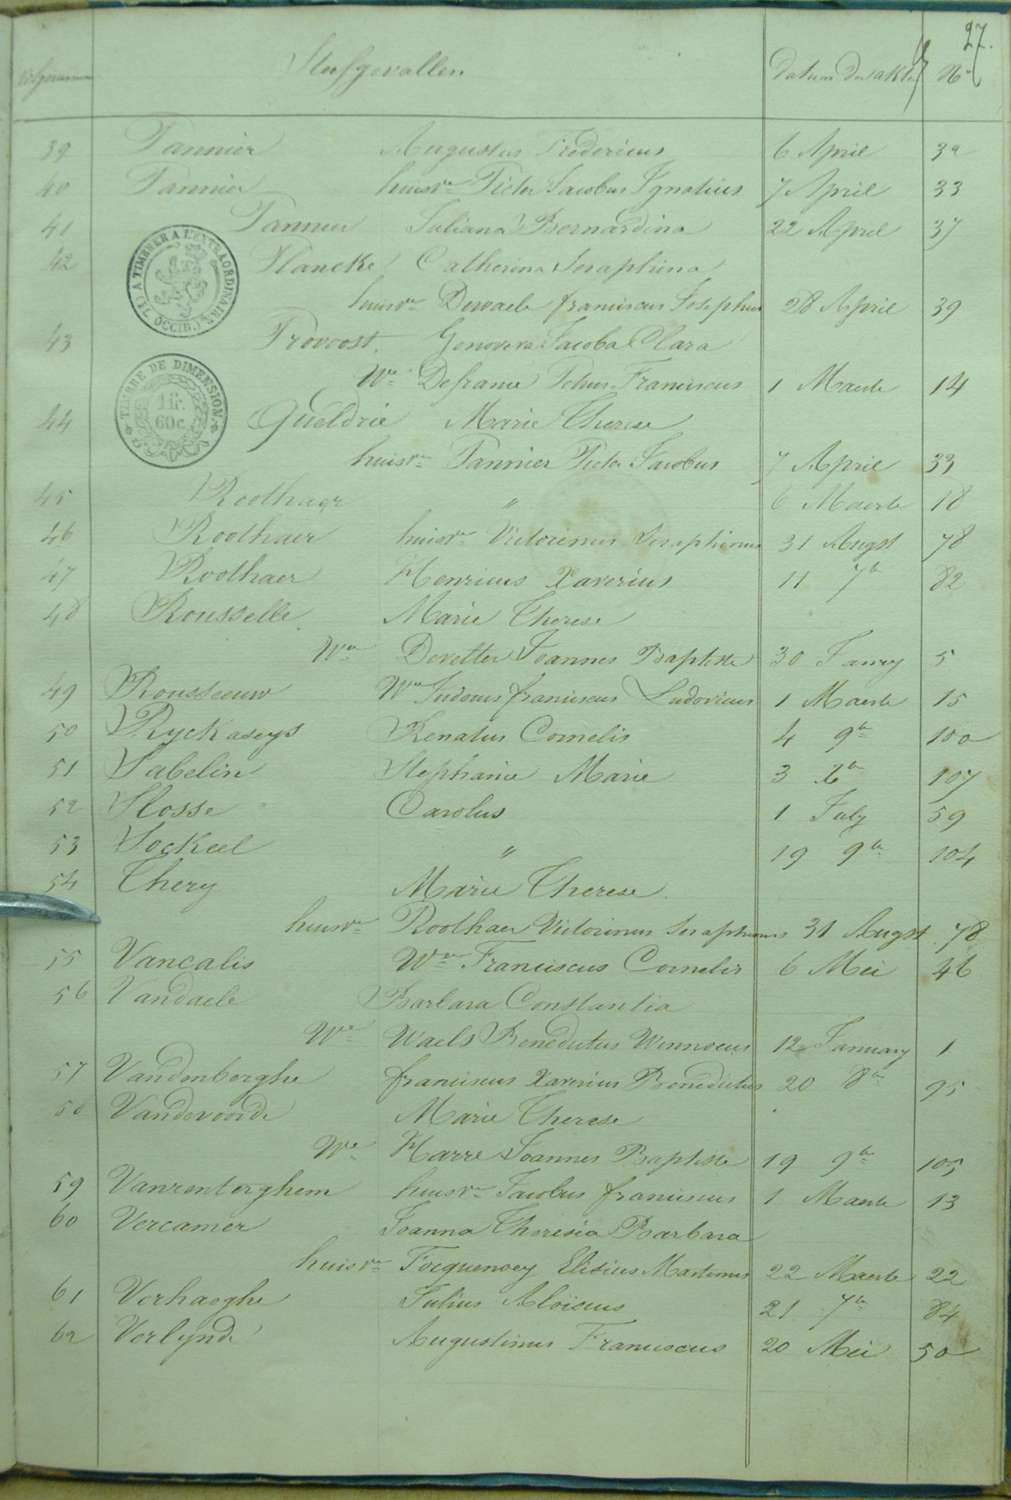 27.
volgnummer Sterfgevallen Datum der akte N°
39 Pannier Augustus Fredericus 6 April 32
40 Pannier huisvr Pieter Jacobus Ignatius 7 April 33
41 Pannier Juliana Bernardina 22 April 37
42 Plancke Catherina Seraphina
huisvr Dewaele franciscus Josephus 28 April 39
43 Provoost Genoveva Jacoba Clara
We Defrance Petrus Franciscus 1 Maerte 14
44 Queldrie Marie Therese
huisvr Pannier Pieter Jacobus 7 April 33
45 Roothaer " 6 Maerte 18
46 Roothaer huisvr Victorinus Seraphinus 31 Augst 78
47 Roothaer Henricus Xaverius 11 7br 82
48 Rousselle Marie Therese
We Devetter Joannes Baptiste 30 Janry 5
49 Rousseeuw We Judocus franciscus Ludovicus 1 Maerte 15
50 Ryckaseys Renatus Cornelis 4 9br 100
51 Sabelin Stephanie Marie 3 Xbr 107
52 Slosse Carolus 1 July 59
53 Sockeel " 19 9br 104
54 Thery Marie Therese
huisvr Roothaer Victorinus Seraphinus 31 Augst 78
55 Vancalis We Franciscus Cornelis 6 Mei 46
56 Vandaele Barbara Constantia
We Waels Benedictus Winnocus 12 January 1
57 Vandenberghe franciscus Xaverius Benedictus 20 8br 95
58 Vandevoorde Marie Therese
We Harre Joannes Baptiste 19 9br 105
59 Vanrenterghem huisvr Jacobus franciscus 1 Maerte 13
60 Vercamer Joanna Theresia Barbara
huisvr Focquenoey Elisius Martinus 22 Maerte 22
61 Verhaeghe Julius Aloisius 21 7br 84
62 Verlynde Augustinus Franciscus 20 Mei 50
A TIMBRER A L'EXTRAORDINAIRE
TIMBRE DE DIMENSION
1 fr.
60 c.